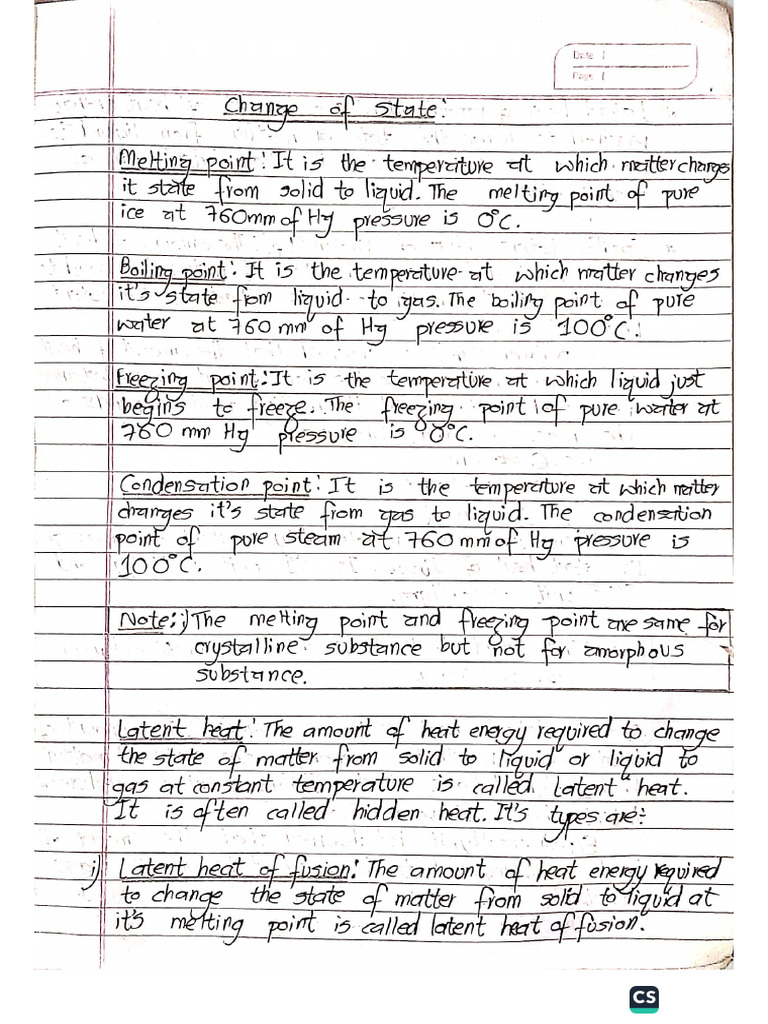 Date :
Page :
Change of state:
Melting point: It is the temperature at which matter changes
it state from solid to liquid. The melting point of pure
ice at 760mm of Hg pressure is 0°C.
Boiling point: It is the temperature at which matter changes
it's state from liquid to gas. The boiling point of pure
water at 760 mm of Hg pressure is 100°C.
Freezing point: It is the temperature at which liquid just
begins to freeze. The freezing point of pure water at
760 mm Hg pressure is 0°C.
Condensation point: It is the temperature at which matter
changes it's state from gas to liquid. The condensation
point of pure steam at 760 mm of Hg pressure is
100°C.
Note: i) The melting point and freezing point are same for
crystalline substance but not for amorphous
substance.
Latent heat: The amount of heat energy required to change
the state of matter from solid to liquid or liquid to
gas at constant temperature is called latent heat.
It is often called hidden heat. It's types are:
i) Latent heat of fusion: The amount of heat energy required
to change the state of matter from solid to liquid at
it's melting point is called latent heat of fusion.
CS